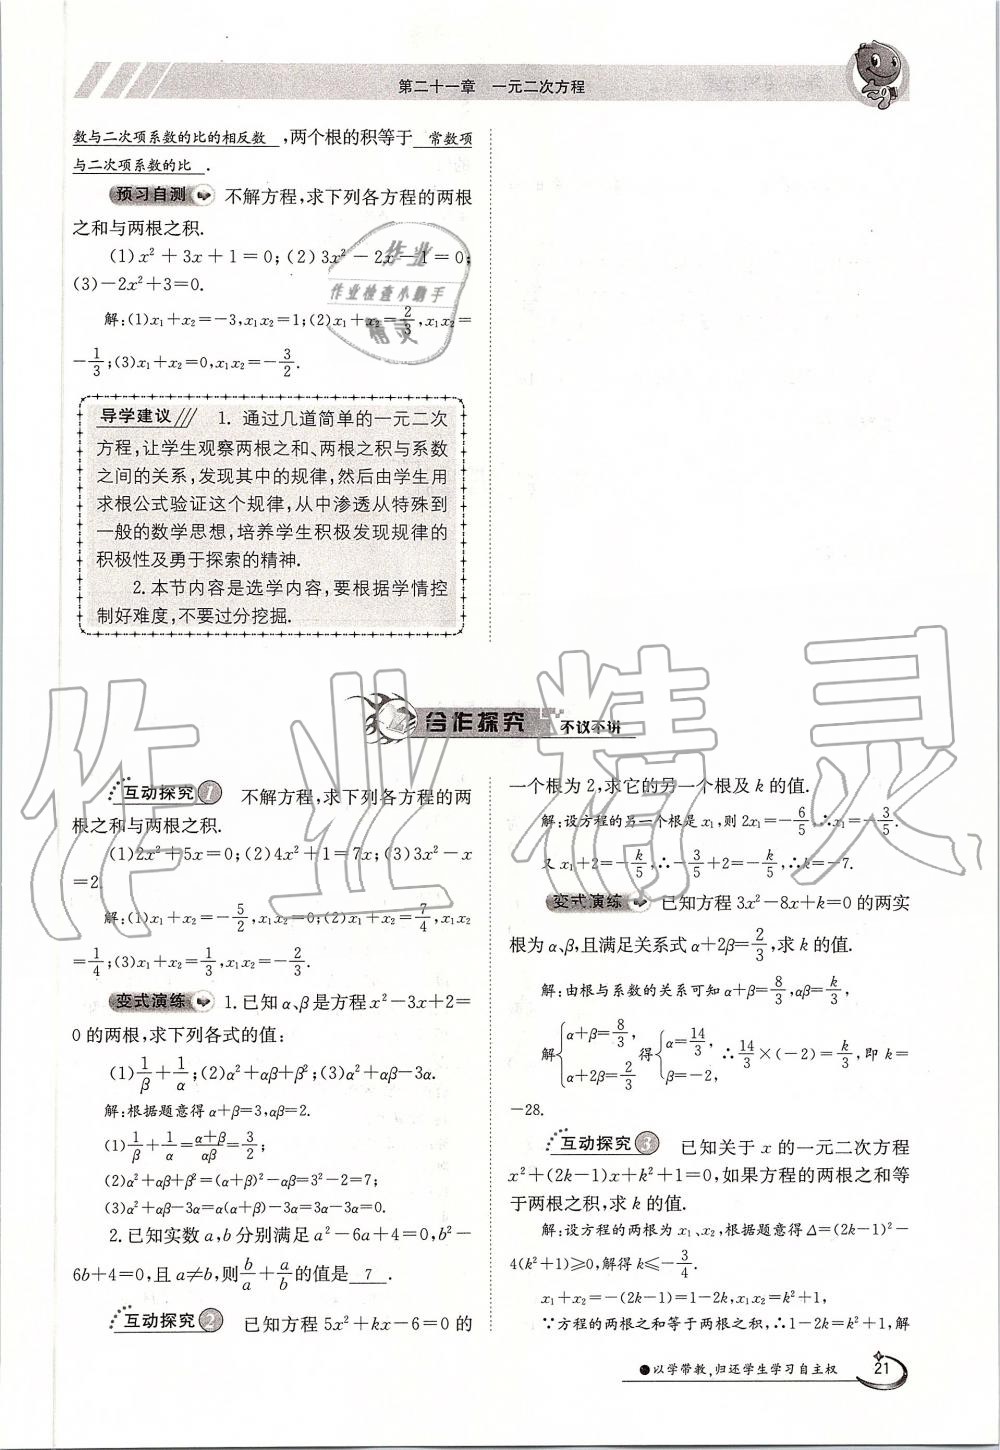 第二十一章 一元二次方程
数与二次项系数的比的相反数,两个根的积等于 常数项
与二次项系数的比.
预习自测 不解方程,求下列各方程的两根
之和与两根之积.
(1)x²+3x+1=0;(2)3x²-2x-1=0;
(3)-2x²+3=0.
解:(1)x₁+x₂=-3,x₁x₂=1;(2)x₁+x₂=2/3,x₁x₂=
-1/3;(3)x₁+x₂=0,x₁x₂=-3/2.
导学建议 1. 通过几道简单的一元二次
方程,让学生观察两根之和、两根之积与系数
之间的关系,发现其中的规律,然后由学生用
求根公式验证这个规律,从中渗透从特殊到
一般的数学思想,培养学生积极发现规律的
积极性及勇于探索的精神.
2.本节内容是选学内容,要根据学情控
制好难度,不要过分挖掘.
作业
作业检查小助手
精灵
合作探究 不议不讲
互动探究1 不解方程,求下列各方程的两
根之和与两根之积.
(1)2x²+5x=0;(2)4x²+1=7x;(3)3x²-x
=2.
解:(1)x₁+x₂=-5/2,x₁x₂=0;(2)x₁+x₂=7/4,x₁x₂
=1/4;(3)x₁+x₂=1/3,x₁x₂=-2/3.
变式演练 1.已知α、β是方程x²-3x+2=
0的两根,求下列各式的值:
(1)1/β+1/α;(2)α²+αβ+β²;(3)α²+αβ-3α.
解:根据题意得α+β=3,αβ=2.
(1)1/β+1/α=(α+β)/αβ=3/2;
(2)α²+αβ+β²=(α+β)²-αβ=3²-2=7;
(3)α²+αβ-3α=α(α+β)-3α=3α-3α=0.
2.已知实数a,b分别满足a²-6a+4=0,b²-
6b+4=0,且a≠b,则b/a+a/b的值是 7 .
互动探究2 已知方程5x²+kx-6=0的
一个根为2,求它的另一个根及k的值.
解:设方程的另一个根是x₁,则2x₁=-6/5,∴x₁=-3/5.
又x₁+2=-k/5,∴-3/5+2=-k/5,∴k=-7.
变式演练 已知方程3x²-8x+k=0的两实
根为α、β,且满足关系式α+2β=2/3,求k的值.
解:由根与系数的关系可知α+β=8/3,αβ=k/3,
解{α+β=8/3, α+2β=2/3 得{α=14/3, β=-2, ∴14/3×(-2)=k/3,即k=
-28.
互动探究3 已知关于x的一元二次方程
x²+(2k-1)x+k²+1=0,如果方程的两根之和等
于两根之积,求k的值.
解:设方程的两根为x₁、x₂,根据题意得Δ=(2k-1)²-
4(k²+1)≥0,解得k≤-3/4.
x₁+x₂=-(2k-1)=1-2k,x₁x₂=k²+1,
∵方程的两根之和等于两根之积,∴1-2k=k²+1,解
●以学带教,归还学生学习自主权 21
作业精灵